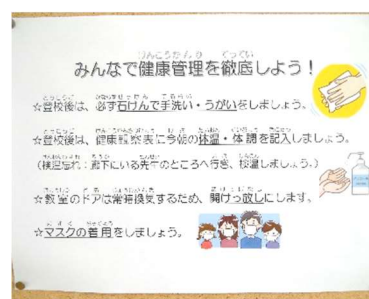 みんなで健康管理を徹底しよう！
☆登校後は、必ず石けんで手洗い・うがいをしましょう。
☆登校後は、健康観察表に今朝の体温・体調を記入しましょう。
(検温忘れ：廊下にいる先生のところへ行き、検温しましょう。)
☆教室のドアは常時換気するため、開けっ放しにします。
☆マスクの着用をしましょう。